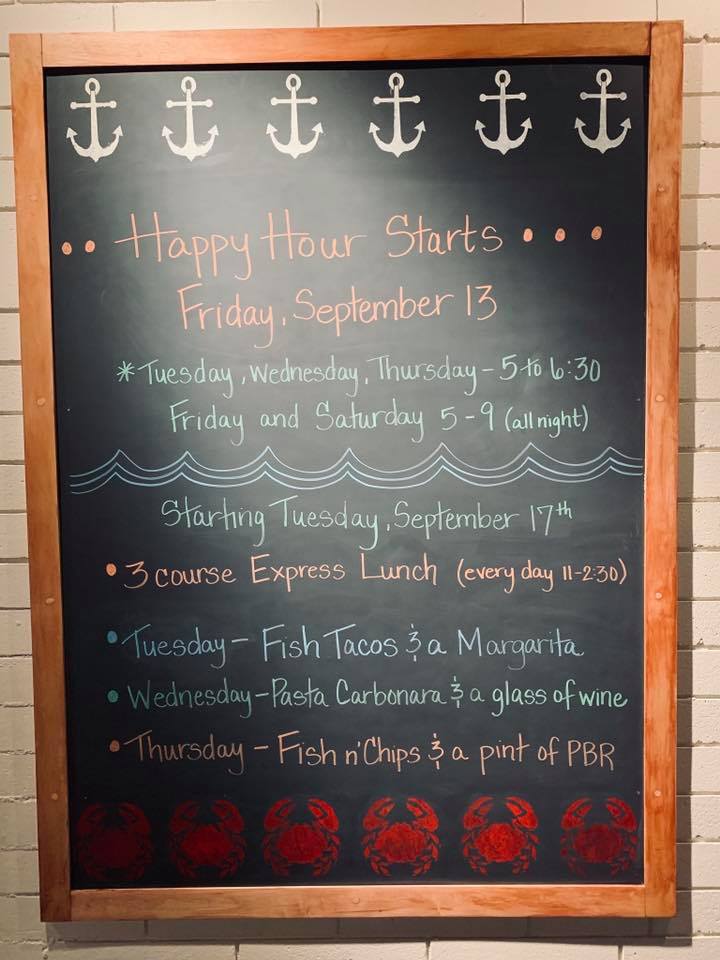 •• Happy Hour Starts •••
Friday, September 13
*Tuesday, Wednesday, Thursday - 5 to 6:30
Friday and Saturday 5-9 (all night)
Starting Tuesday, September 17th
• 3 course Express Lunch (every day 11-2:30)
• Tuesday - Fish Tacos & a Margarita
• Wednesday - Pasta Carbonara & a glass of wine
• Thursday - Fish n' Chips & a pint of PBR